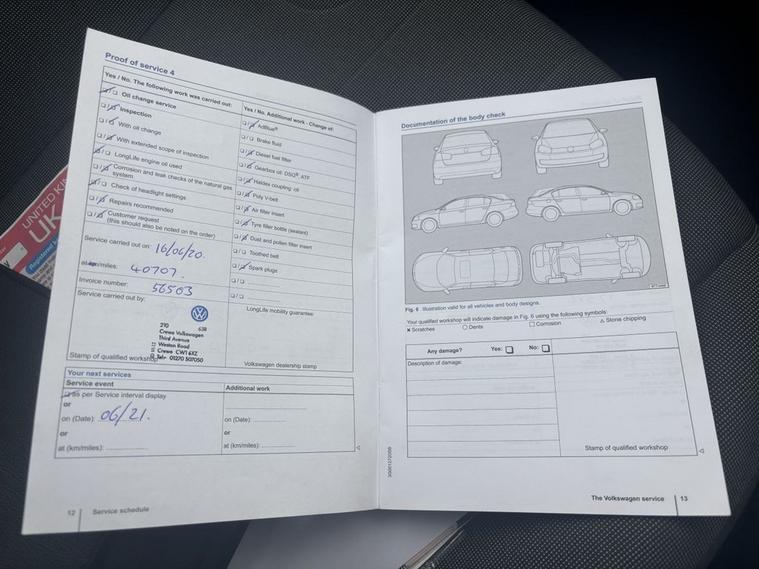 UNITED KIN
UK
Registered
Proof of service 4
Yes / No. The following work was carried out:
❑/❑ Oil change service
❑/❑ Inspection
❑/❑ With oil change
❑/❑ With extended scope of inspection
❑/❑ LongLife engine oil used
❑/❑ Corrosion and leak checks of the natural gas
system
❑/❑ Check of headlight settings
❑/❑ Repairs recommended
❑/❑ Customer request
(this should also be noted on the order)
Service carried out on: 16/06/20.
at km/miles: 40707.
Invoice number: 56503
Service carried out by:
210 638
Crewe Volkswagen
Third Avenue
Weston Road
Crewe CW1 6XZ
Tel: 01270 507050
Stamp of qualified workshop
Yes / No. Additional work - Change of:
❑/❑ AdBlue®
❑/❑ Brake fluid
❑/❑ Diesel fuel filter
❑/❑ Gearbox oil: DSG®, ATF
❑/❑ Haldex coupling oil
❑/❑ Poly V-belt
❑/❑ Air filter insert
❑/❑ Tyre filler bottle (sealant)
❑/❑ Dust and pollen filter insert
❑/❑ Toothed belt
❑/❑ Spark plugs
❑/❑
❑/❑
LongLife mobility guarantee:
Volkswagen dealership stamp
Your next services
Service event
❑ as per Service interval display
or
on (Date): 06/21.
or
at (km/miles):
Additional work
on (Date):
or
at (km/miles):
12 Service schedule
Documentation of the body check
Fig. 6 Illustration valid for all vehicles and body designs.
Your qualified workshop will indicate damage in Fig. 6 using the following symbols:
× Scratches ○ Dents □ Corrosion △ Stone chipping
Any damage? Yes: ❑ No: ❑
Description of damage:
Stamp of qualified workshop
The Volkswagen service 13